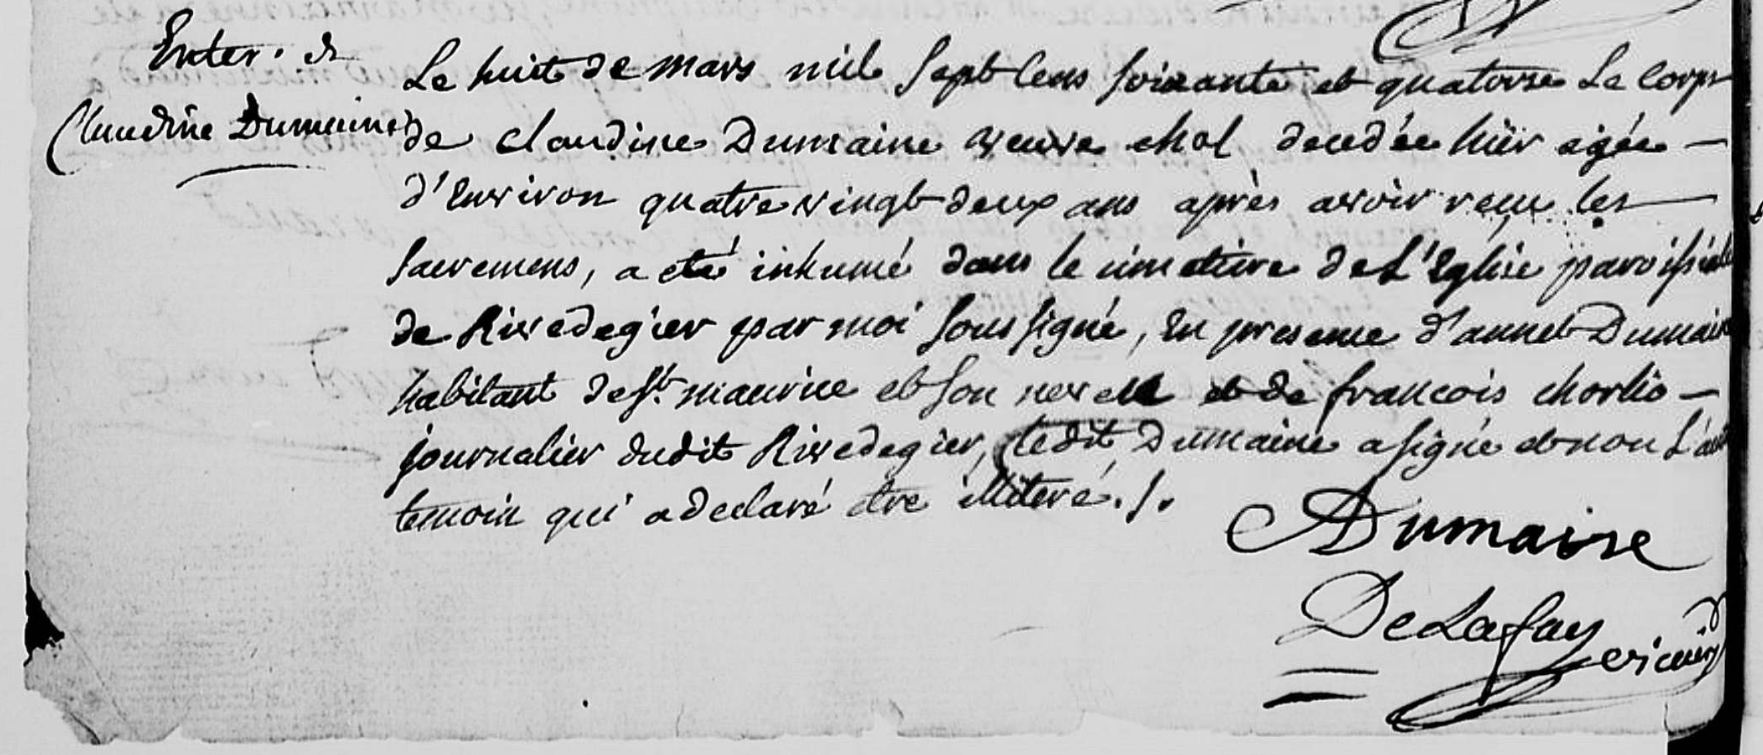 Enter. de
Claudine Dumaine
Le huit de mars mil sept cens soixante et quatorse Le corps
de claudine Dumaine veuve chol decedée hier agée
d'Environ quatre vingt deux ans après avoir reçu les
sacremens, a eté inhumé dans le cimetiere de L'Eglise paroissiale
de Rivedegier par moi soussigné, En presence d'annet Dumaine
habitant de st. maurice et son neveu et de francois chorlio
journalier dudit Rivedegier, ledit Dumaine a signé et non L'autre
temoin qui a declaré etre illiteré./.
ADumaine
DeLafay
vicaire